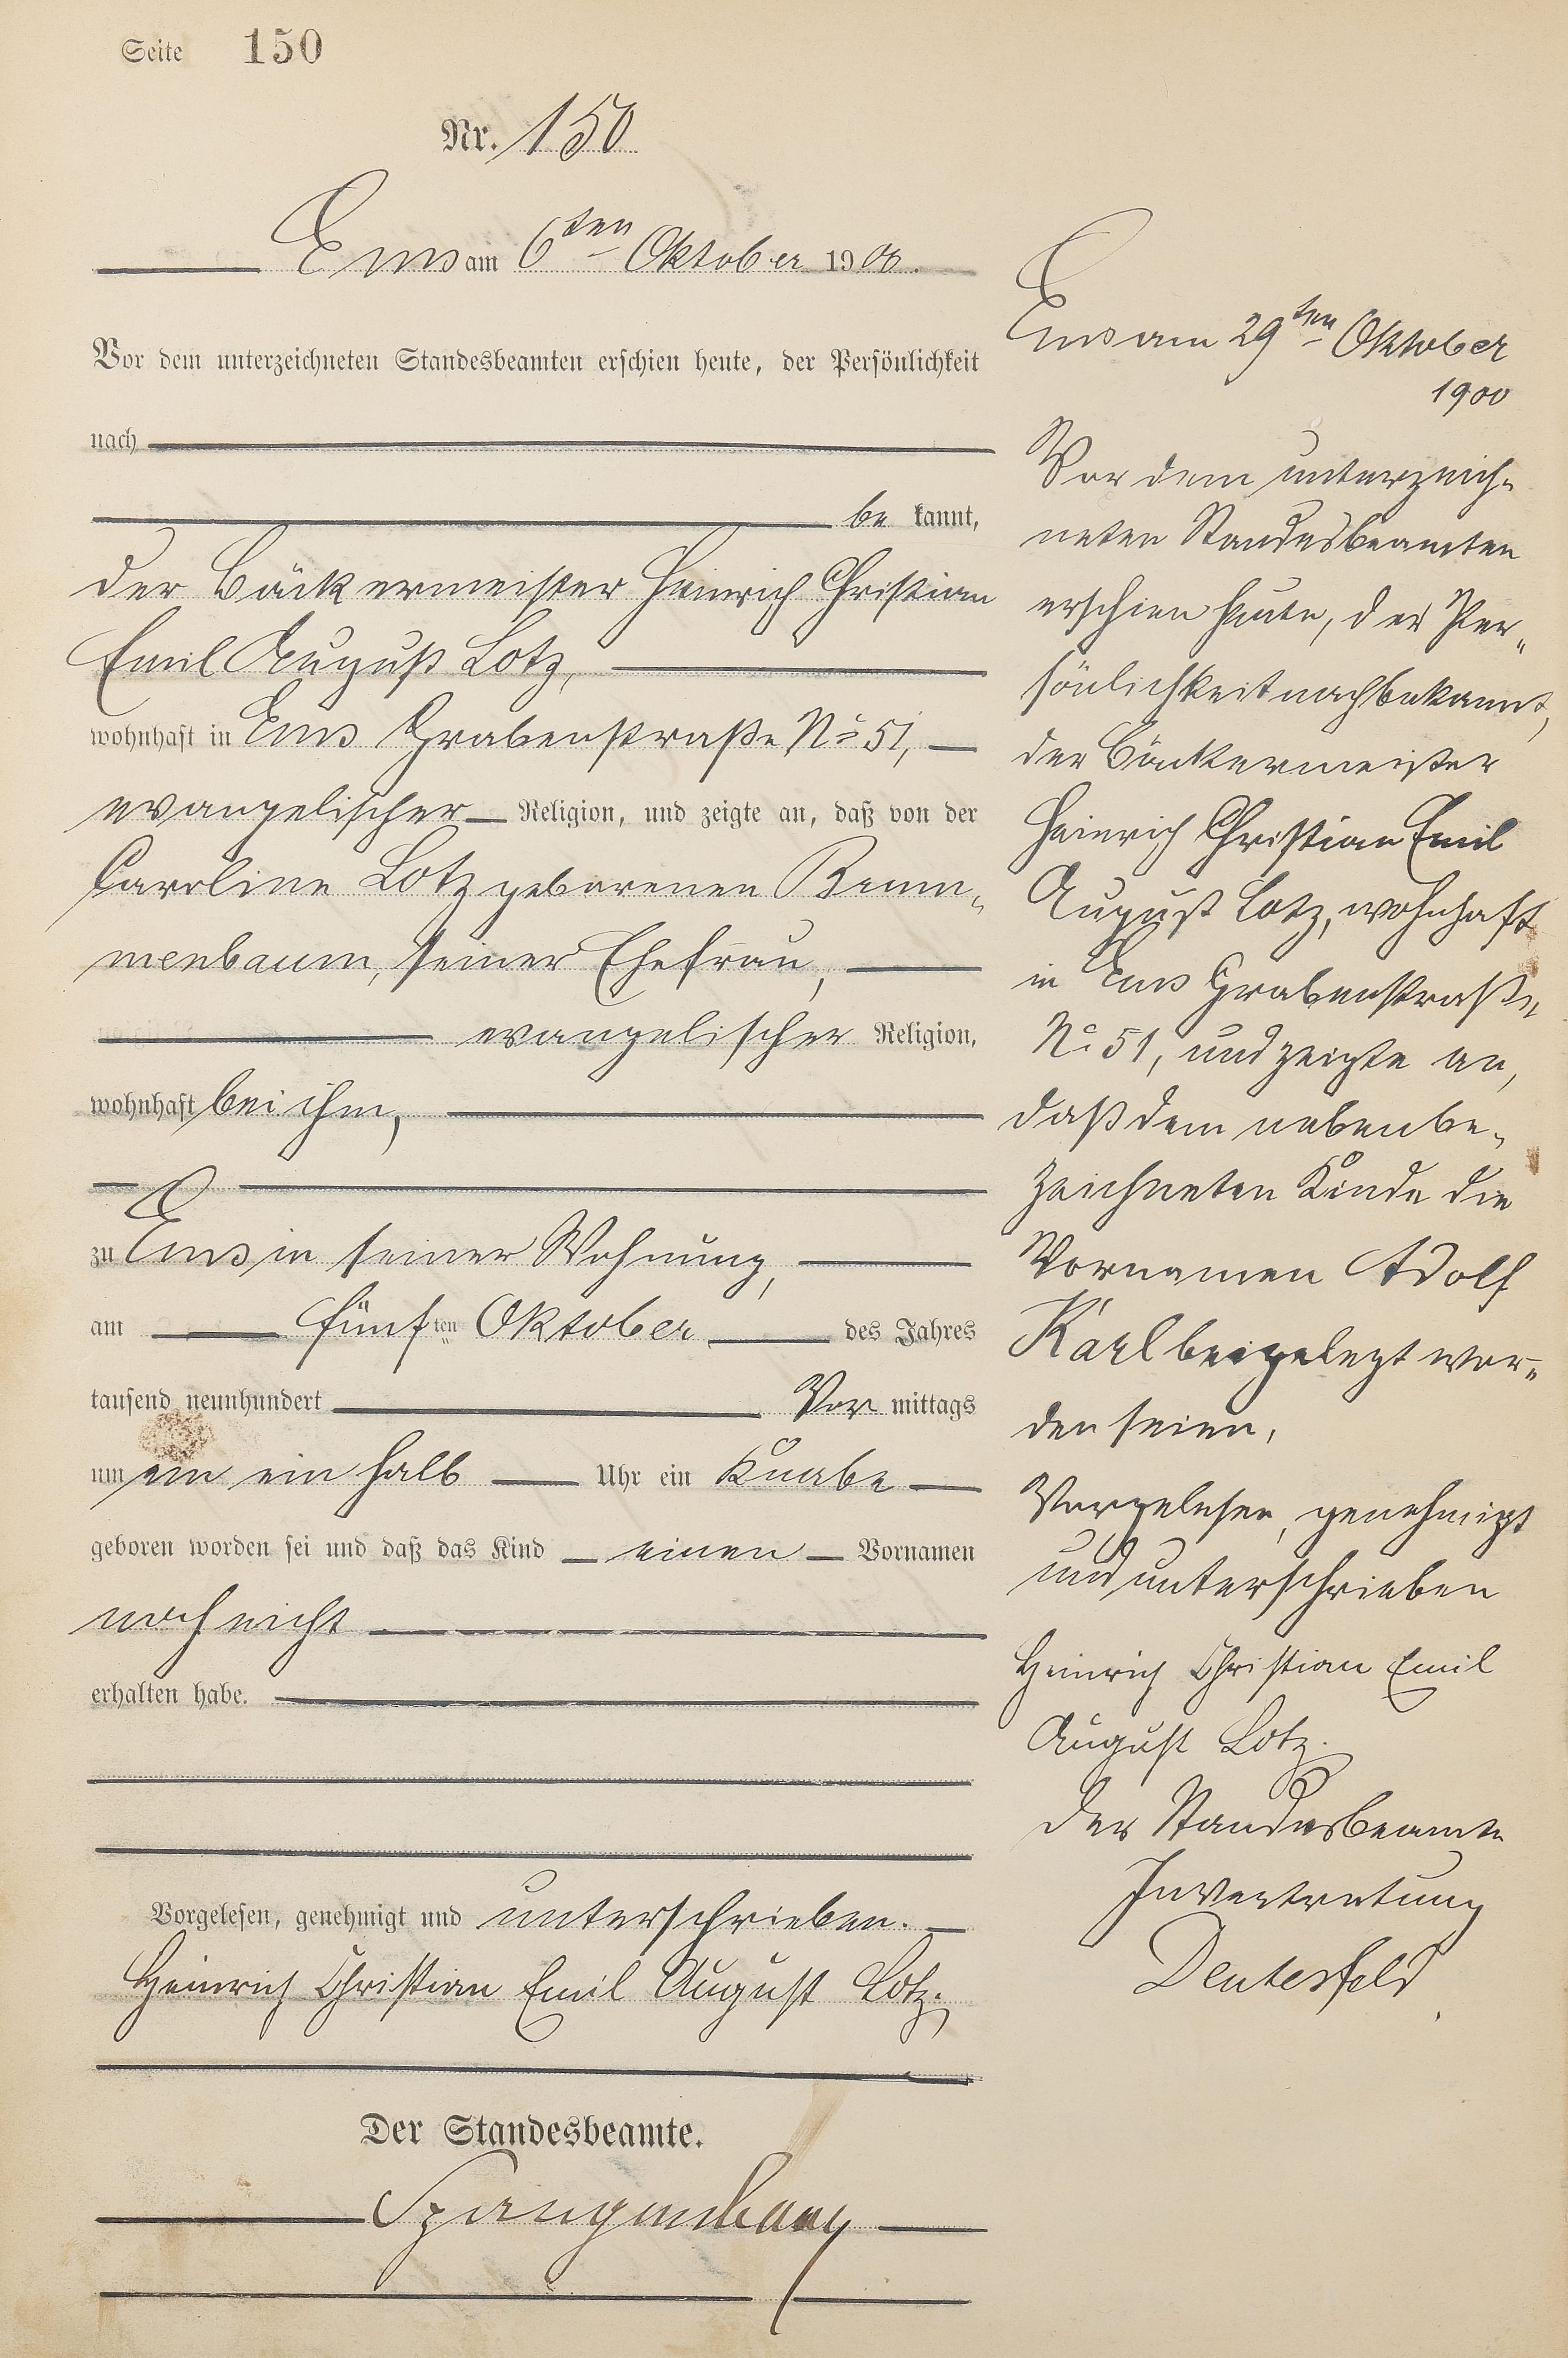 Seite 150
Nr. 150
Ems am 6ten Oktober 1900.
Vor dem unterzeichneten Standesbeamten erschien heute, der Persönlichkeit
nach
be kannt,
der Bäckermeister Heinrich Christian
Emil August Lotz,
wohnhaft in Ems Grabenstraße No 51,
evangelischer Religion, und zeigte an, daß von der
Caroline Lotz geborenen Remm„
menbaum, seiner Ehefrau,
evangelischer Religion,
wohnhaft bei ihm,
zu Ems in seiner Wohnung,
am fünf ten Oktober des Jahres
tausend neunhundert Vor mittags
um ein ein halb Uhr ein Knabe
geboren worden sei und daß das Kind einen Vornamen
noch nicht
erhalten habe.
Vorgelesen, genehmigt und unterschrieben.
Heinrich Christian Emil August Lotz.
Der Standesbeamte.
Spangenberg
Ems am 29ten Oktober
1900
Vor dem unterzeich„
neten Standesbeamten
erschien heute, der Per„
sönlichkeit nach bekannt,
der Bäckermeister
Heinrich Christian Emil
August Lotz, wohnhaft
in Ems Grabenstraße,
No 51, und zeigte an,
daß dem nebenbe„
zeichneten Kinde die
Vornamen Adolf
Karl beigelegt wor„
den seien.
Vorgelesen, genehmigt
und unterschrieben
Heinrich Christian Emil
August Lotz.
Der Standesbeamte
In Vertretung
Deutesfeld